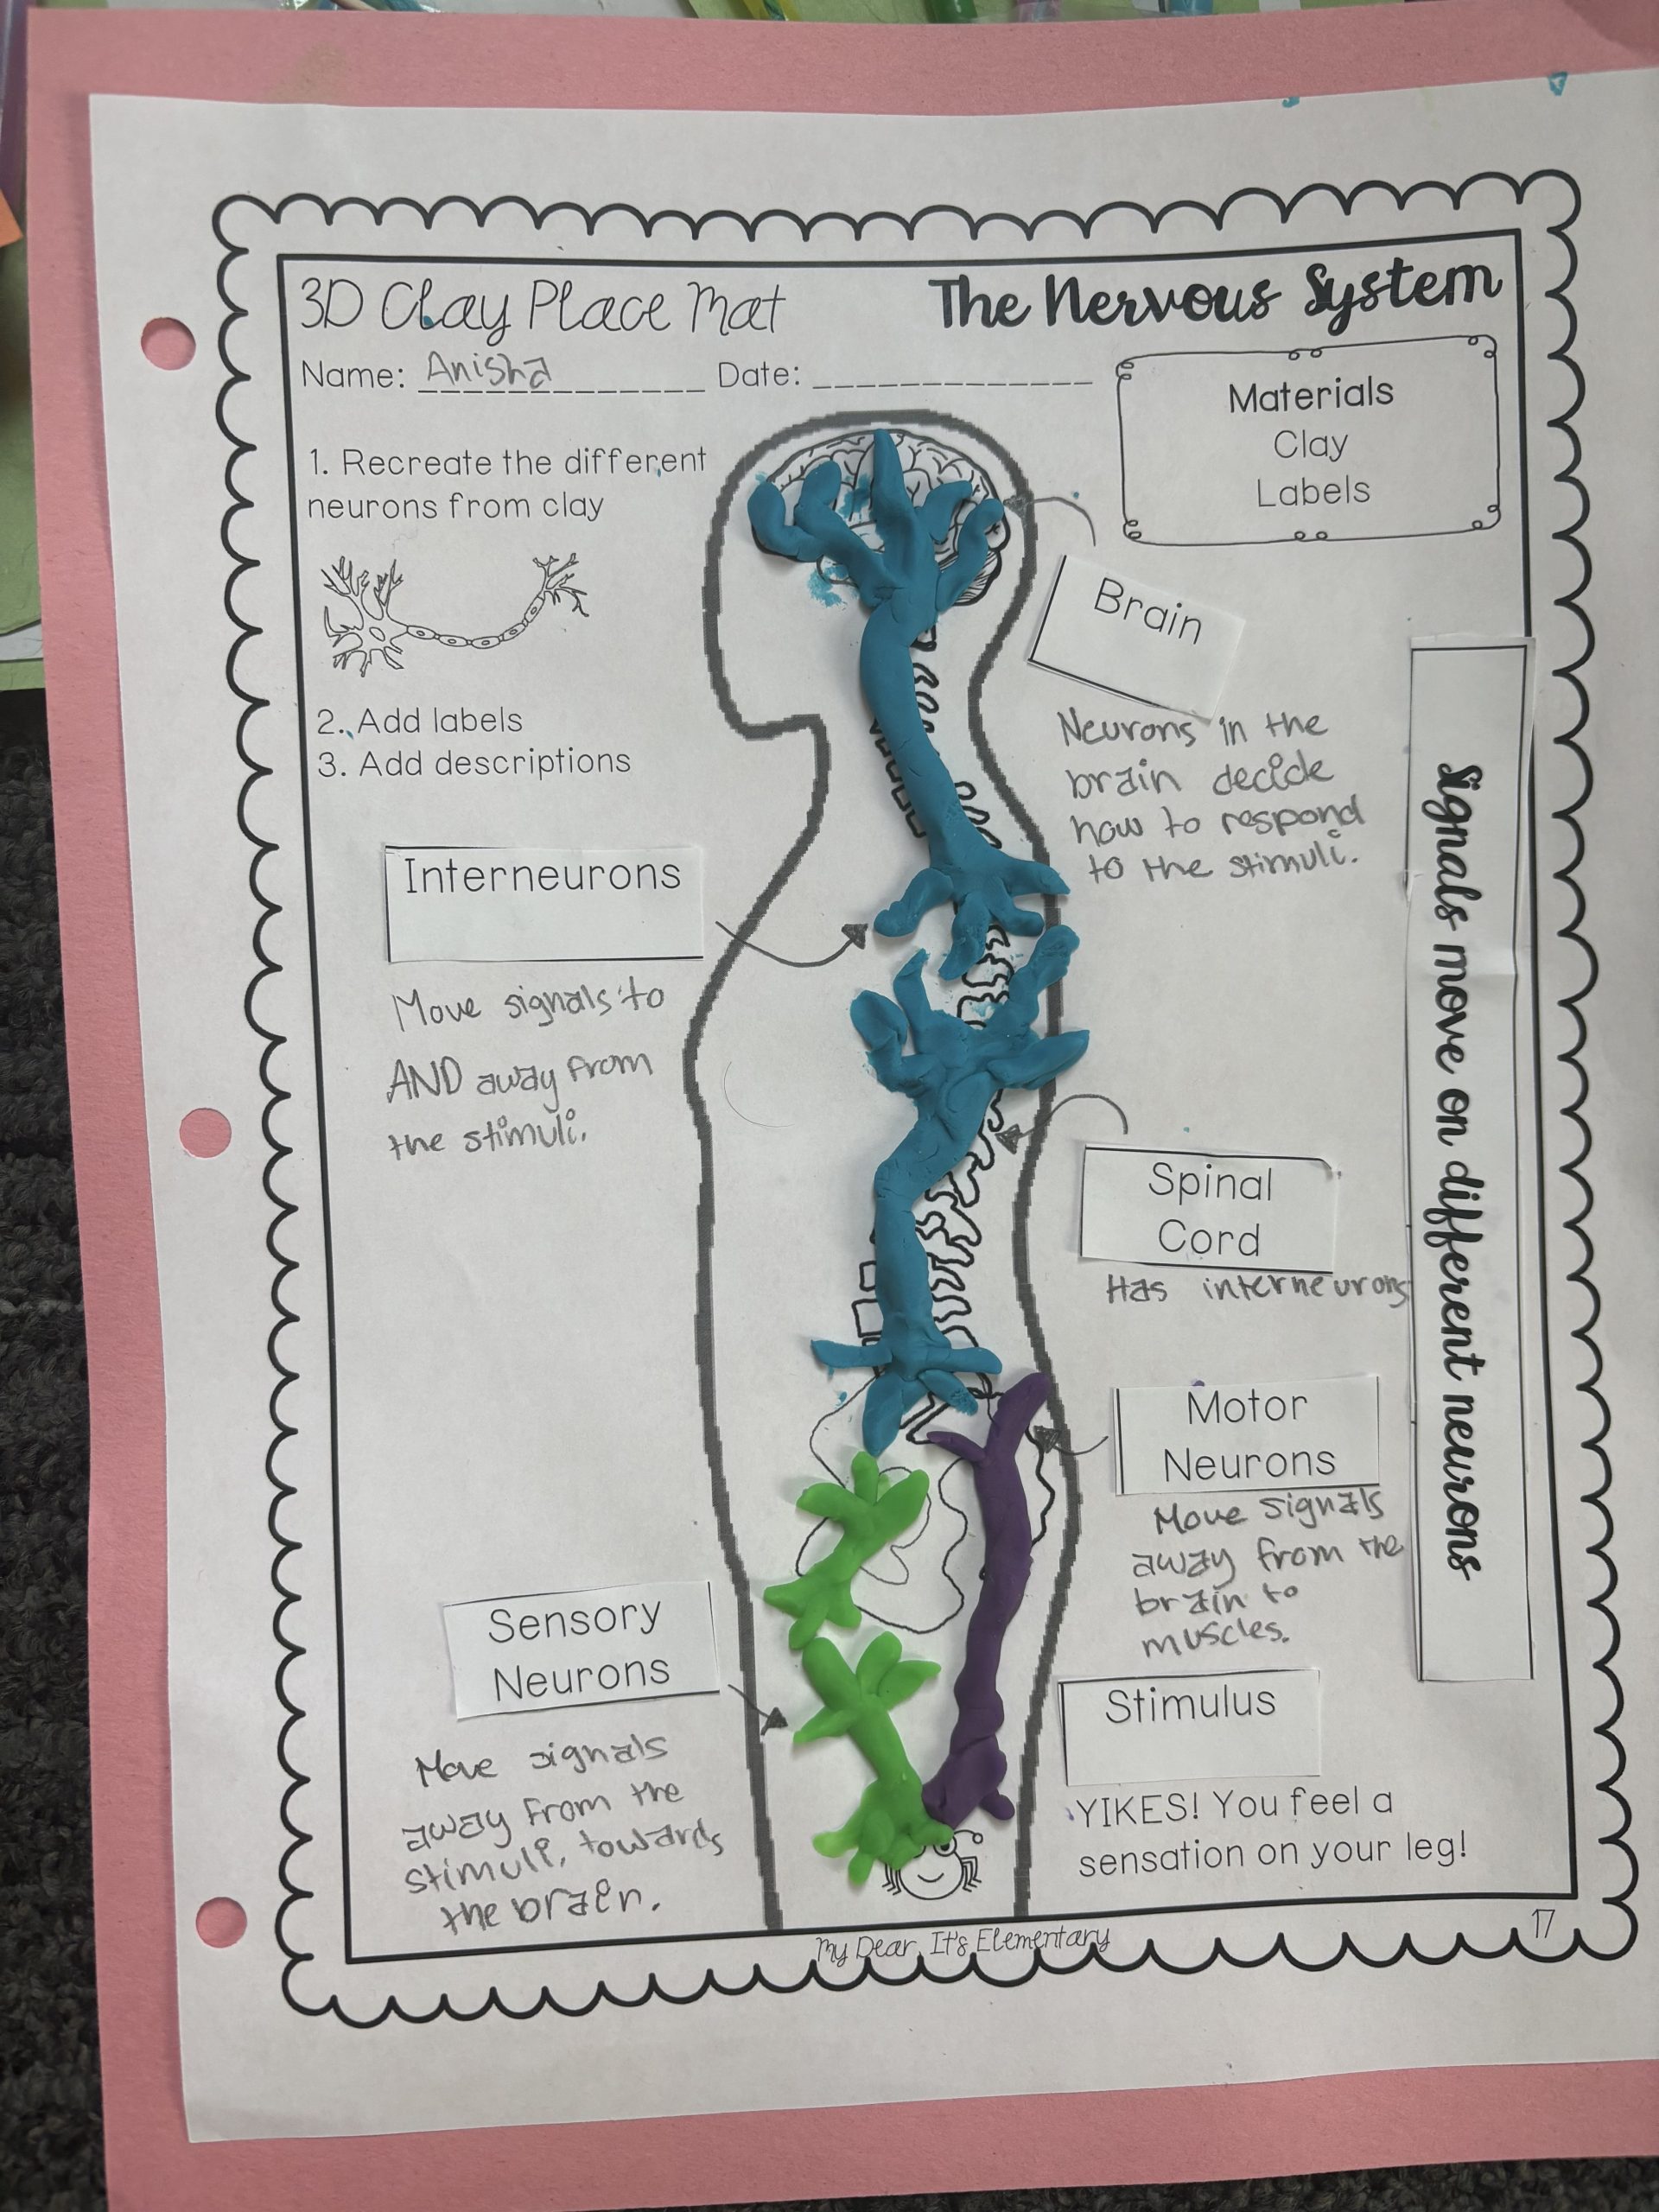 3D Clay Place Mat
The Nervous System
Name: Anisha Date:
Materials
Clay
Labels
1. Recreate the different
neurons from clay
2. Add labels
3. Add descriptions
Brain
Neurons in the
brain decide
how to respond
to the stimuli.
Signals move on different neurons
Interneurons
Move signals to
AND away from
the stimuli.
Spinal
Cord
Has interneurons
Motor
Neurons
Move signals
away from the
brain to
muscles.
Sensory
Neurons
Move signals
away from the
stimuli, towards
the brain.
Stimulus
YIKES! You feel a
sensation on your leg!
My Dear, It's Elementary
17